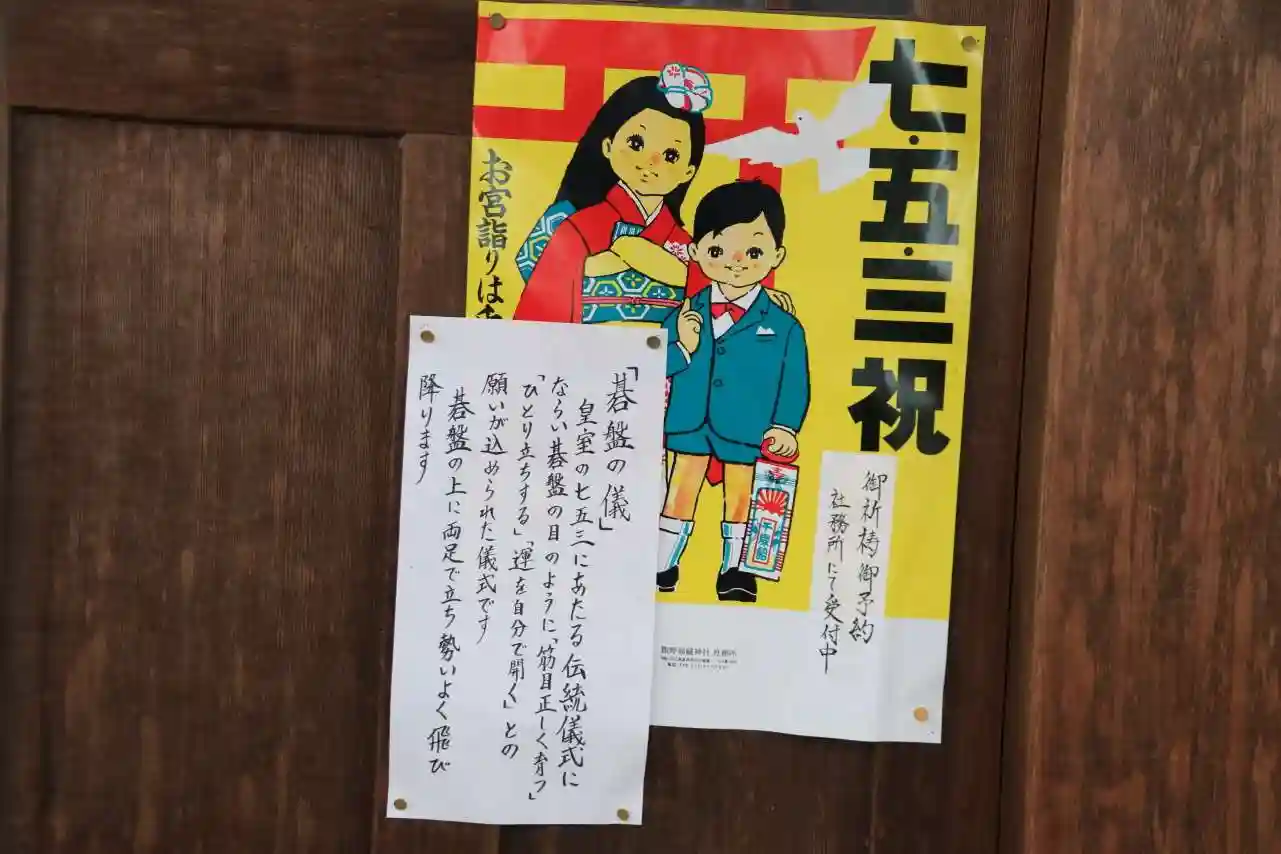 七・五・三祝
御祈祷御予約
社務所にて受付中
お宮詣りは
千歳飴
「碁盤の儀」
皇室の七五三にあたる伝統儀式に
ならい碁盤の目のように「筋目正しく育つ」
「ひとり立ちする」「運を自分で開く」との
願いが込められた儀式です
碁盤の上に両足で立ち勢いよく飛び
降ります